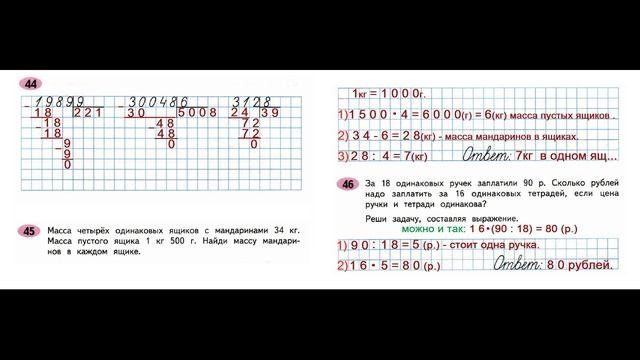 44
19899
18 221
18
18
9
9
0
300486
30 5008
48
48
0
3128
24 39
72
72
0
45 Масса четырёх одинаковых ящиков с мандаринами 34 кг.
Масса пустого ящика 1 кг 500 г. Найди массу мандари-
нов в каждом ящике.
1кг = 1000г.
1) 1500 • 4 = 6000(г) = 6(кг) масса пустых ящиков.
2) 34 - 6 = 28(кг) - масса мандаринов в ящиках.
3) 28 : 4 = 7(кг) Ответ: 7кг в одном ящ...
46 За 18 одинаковых ручек заплатили 90 р. Сколько рублей
надо заплатить за 16 одинаковых тетрадей, если цена
ручки и тетради одинакова?
Реши задачу, составляя выражение.
можно и так: 16•(90 : 18) = 80 (р.)
1) 90 : 18 = 5 (р.) - стоит одна ручка.
2) 16 • 5 = 80 (р.) Ответ: 80 рублей.